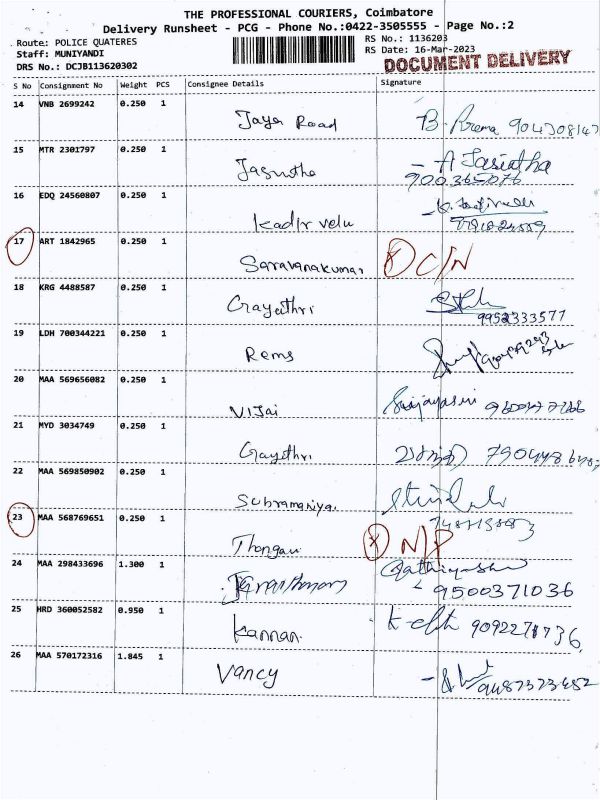 THE PROFESSIONAL COURIERS, Coimbatore
Delivery Runsheet - PCG - Phone No.:0422-3505555 - Page No.:2
Route: POLICE QUATERES
RS No.: 1136203
Staff: MUNIYANDI
RS Date: 16-Mar-2023
DRS No.: DCJB113620302
DOCUMENT DELIVERY
S No Consignment No Weight PCS Consignee Details Signature
14 VNB 2699242 0.250 1
Jaya Road B. Prema
15 MTR 2301797 0.250 1
16 EDQ 24560807 0.250 1
Kadir velu
17 ART 1842965 0.250 1
Saravanakumar C/N
18 KRG 4488587 0.250 1
Gayathri
9952333577
19 LDH 700344221 0.250 1
Rems
20 MAA 569656082 0.250 1
Vijai
21 MYD 3034749 0.250 1
Gayathri
22 MAA 569850902 0.250 1
Subramaniya
23 MAA 568769651 0.250 1
N/P
24 MAA 298433696 1.300 1
9500371036
25 HRD 360052582 0.950 1
Kannan
26 MAA 570172316 1.845 1
Vancy